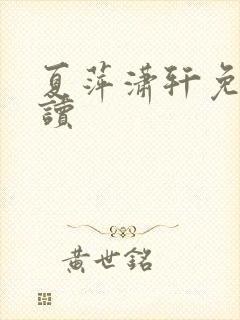 夏萍潇轩免
讀
黄世銘